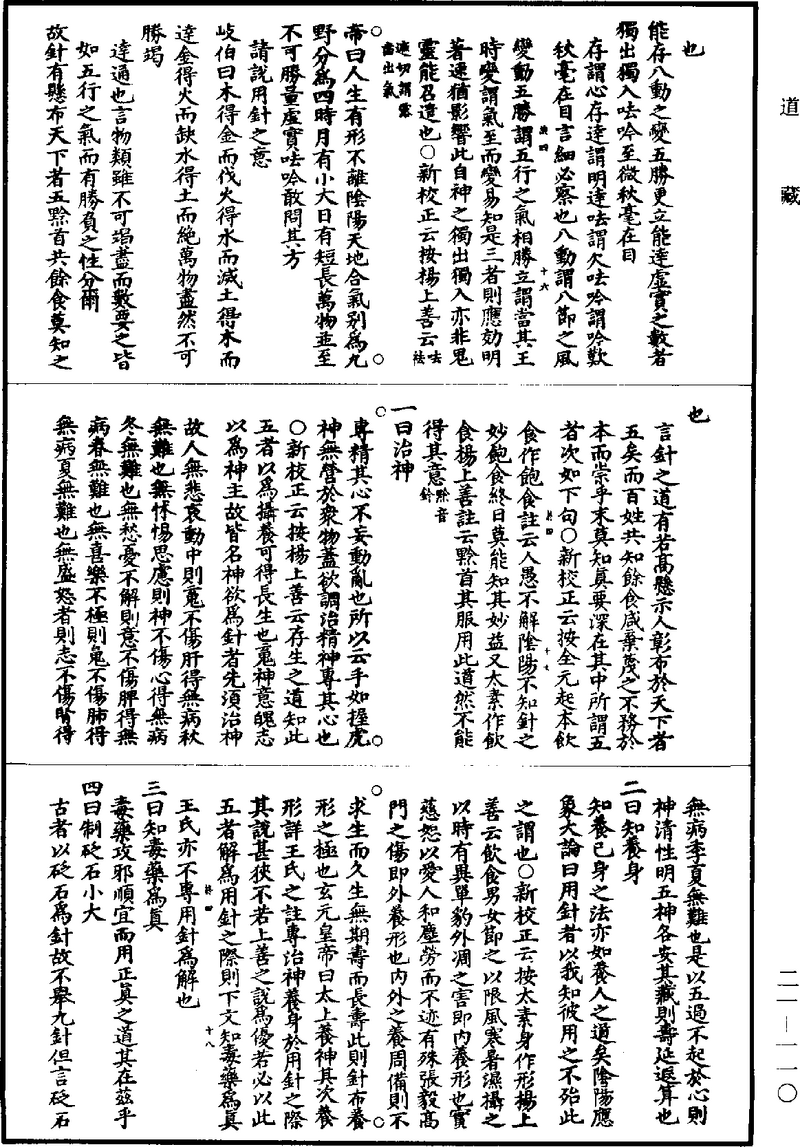 道藏
能存八動之變五勝更立能達虛實之數者
獨出獨入呿吟至微秋毫在目
存謂心存達謂明達呿謂欠呿吟謂吟歎
秋毫在目言細必察也八動謂八節之風
變動五勝謂五行之氣相勝立謂當其王
時變謂氣至而變易知是三者則應効明
著速猶影響皆神之獨出獨入亦非鬼
靈能召遣也○新校正云按楊上善云呿
遮切謂露齒出氣
帝曰人生有形不離陰陽天地合氣別爲九
野分爲四時月有小大日有短長萬物並至
不可勝量虛實呿吟敢問其方
請說用針之意
岐伯曰木得金而伐火得水而滅土得木而
達金得火而缺水得土而絕萬物盡然不可
勝竭
達通也言物類雖不可竭盡而數要之皆
如五行之氣而有勝負之性分爾
故針有懸布天下者五黔首共餘食莫知之
也
言針之道有若高懸示人彰布於天下者
五矣而百姓共知餘食咸棄蔑之不務於
本而崇乎末莫知真要深在其中所謂五
者次如下句○新校正云按全元起本飲
食作飽食註云人愚不解陰陽不知針之
妙飽食終日莫能知其妙益又太素作飲
食楊上善註云黔首共服用此道然不能
得其意黔音鈐
一曰治神
專精其心不妄動亂也所以云手如握虎
神無營於衆物蓋欲調治精神專其心也
○新校正云按楊上善云存生之道知此
五者以爲攝養可得長生也魂神意魄志
以爲神主故皆名神欲爲針者先須治神
故人無悲哀動中則魂不傷肝得無病秋
無難也無怵惕思慮則神不傷心得無病
冬無難也無愁憂不解則意不傷脾得無
病春無難也無喜樂不極則魄不傷肺得
無病夏無難也無盛怒者則志不傷腎得
無病季夏無難也是以五過不起於心則
神清性明五神各安其藏則壽延遐算也
二曰知養身
知養己身之法亦如養人之道矣陰陽應
象大論曰用針者以我知彼用之不殆此
之謂也○新校正云按太素身作形楊上
善云飲食男女節之以限風寒暑濕攝之
以時有異單豹外凋之害即內養形也實
慈恕以愛人和塵勞而不迹有殊張毅高
門之傷即外養形也內外之養周備則不
求生而久生無期壽而長壽此則針布養
形之極也玄元皇帝曰太上養神其次養
形詳王氏之註專治神養身於用針之際
其說甚狹不若上善之說爲優若必以此
五者解爲用針之際則下文知毒藥爲真
王氏亦不專用針爲解也
三曰知毒藥爲真
毒藥攻邪順宜而用正真之道其在茲乎
四曰制砭石小大
古者以砭石爲針故不舉九針但言砭石
二一—一一〇